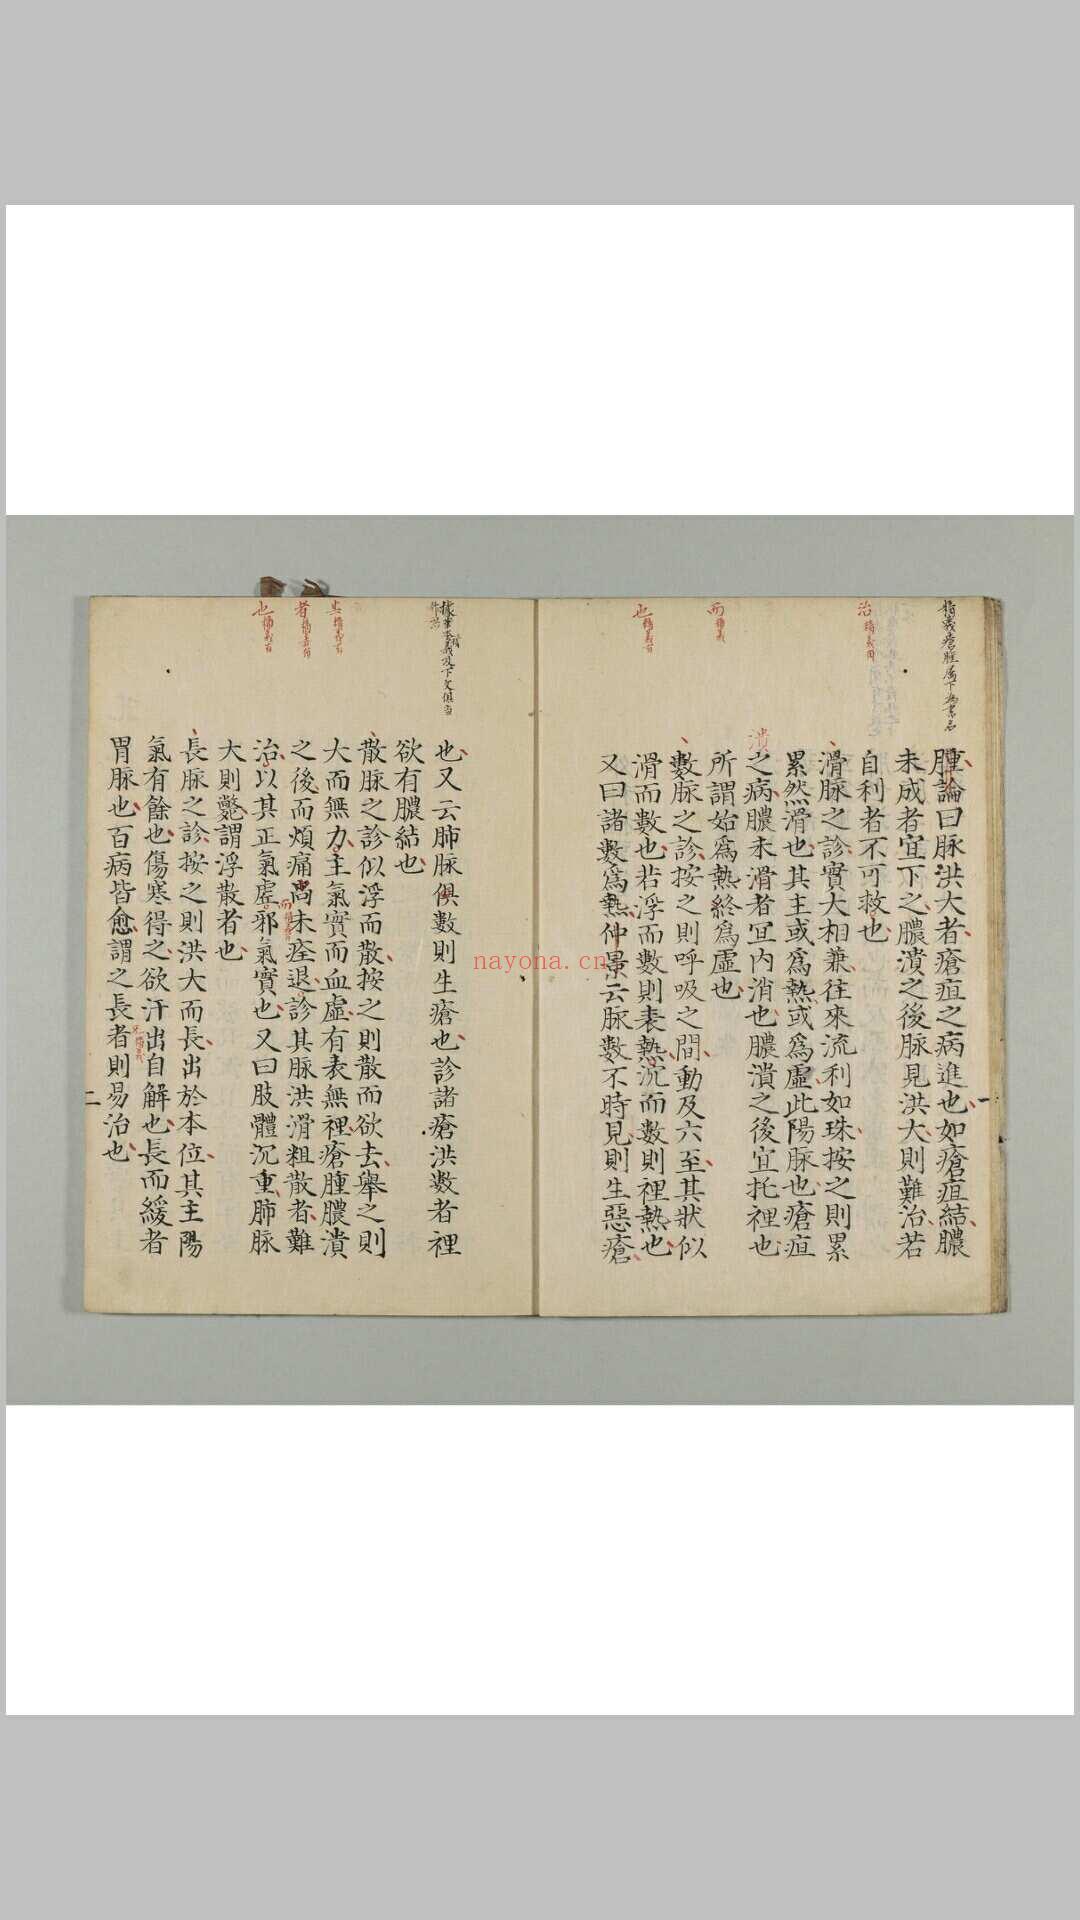 精義瘡腫屬下為書名
治
精義同
而
精義
也
精義有
潰
腫論曰脉洪大者瘡疽之病進也如瘡疽結膿
未成者宜下之膿潰之後脉見洪大則難治若
自利者不可救也
滑脉之診實大相兼往來流利如珠按之則累
累然滑也其主或爲熱或爲虛此陽脉也瘡疽
之病膿未滑者宜內消也膿潰之後宜托裡也
所謂始爲熱終爲虛也
數脉之診按之則呼吸之間動及六至其狀似
滑而數也若浮而數則表熱沉而數則裡熱也
又曰諸數爲熱仲景云脉數不時見則生惡瘡
一
其
精義有
者
精義有
也
精義有
也又云肺脉俱數則生瘡也診諸瘡洪數者裡
欲有膿結也
散脉之診似浮而散按之則散而欲去舉之則
大而無力主氣實而血虛有表無裡瘡腫膿潰
之後而煩痛尚未痊退診其脉洪滑粗散者難
治以其正氣虛邪氣實也又曰肢體沉重肺脉
大則斃謂浮散者也
長脉之診按之則洪大而長出於本位其主陽
氣有餘也傷寒得之欲汗出自解也長而緩者
胃脉也百病皆愈謂之長者則易治也
二
nayona.cn